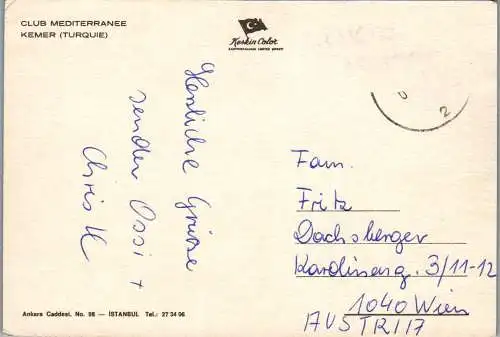 CLUB MEDITERRANEE
KEMER (TURQUIE)
Keskin Color
Herzliche Grüsse
senden Ossi +
Chris K
Fam.
Fritz
Dachsberger
Kardinalg. 3/11-12
1040 Wien
AUSTRIA
Ankara Caddesi, No. 98 — İSTANBUL Tel.: 27 34 06